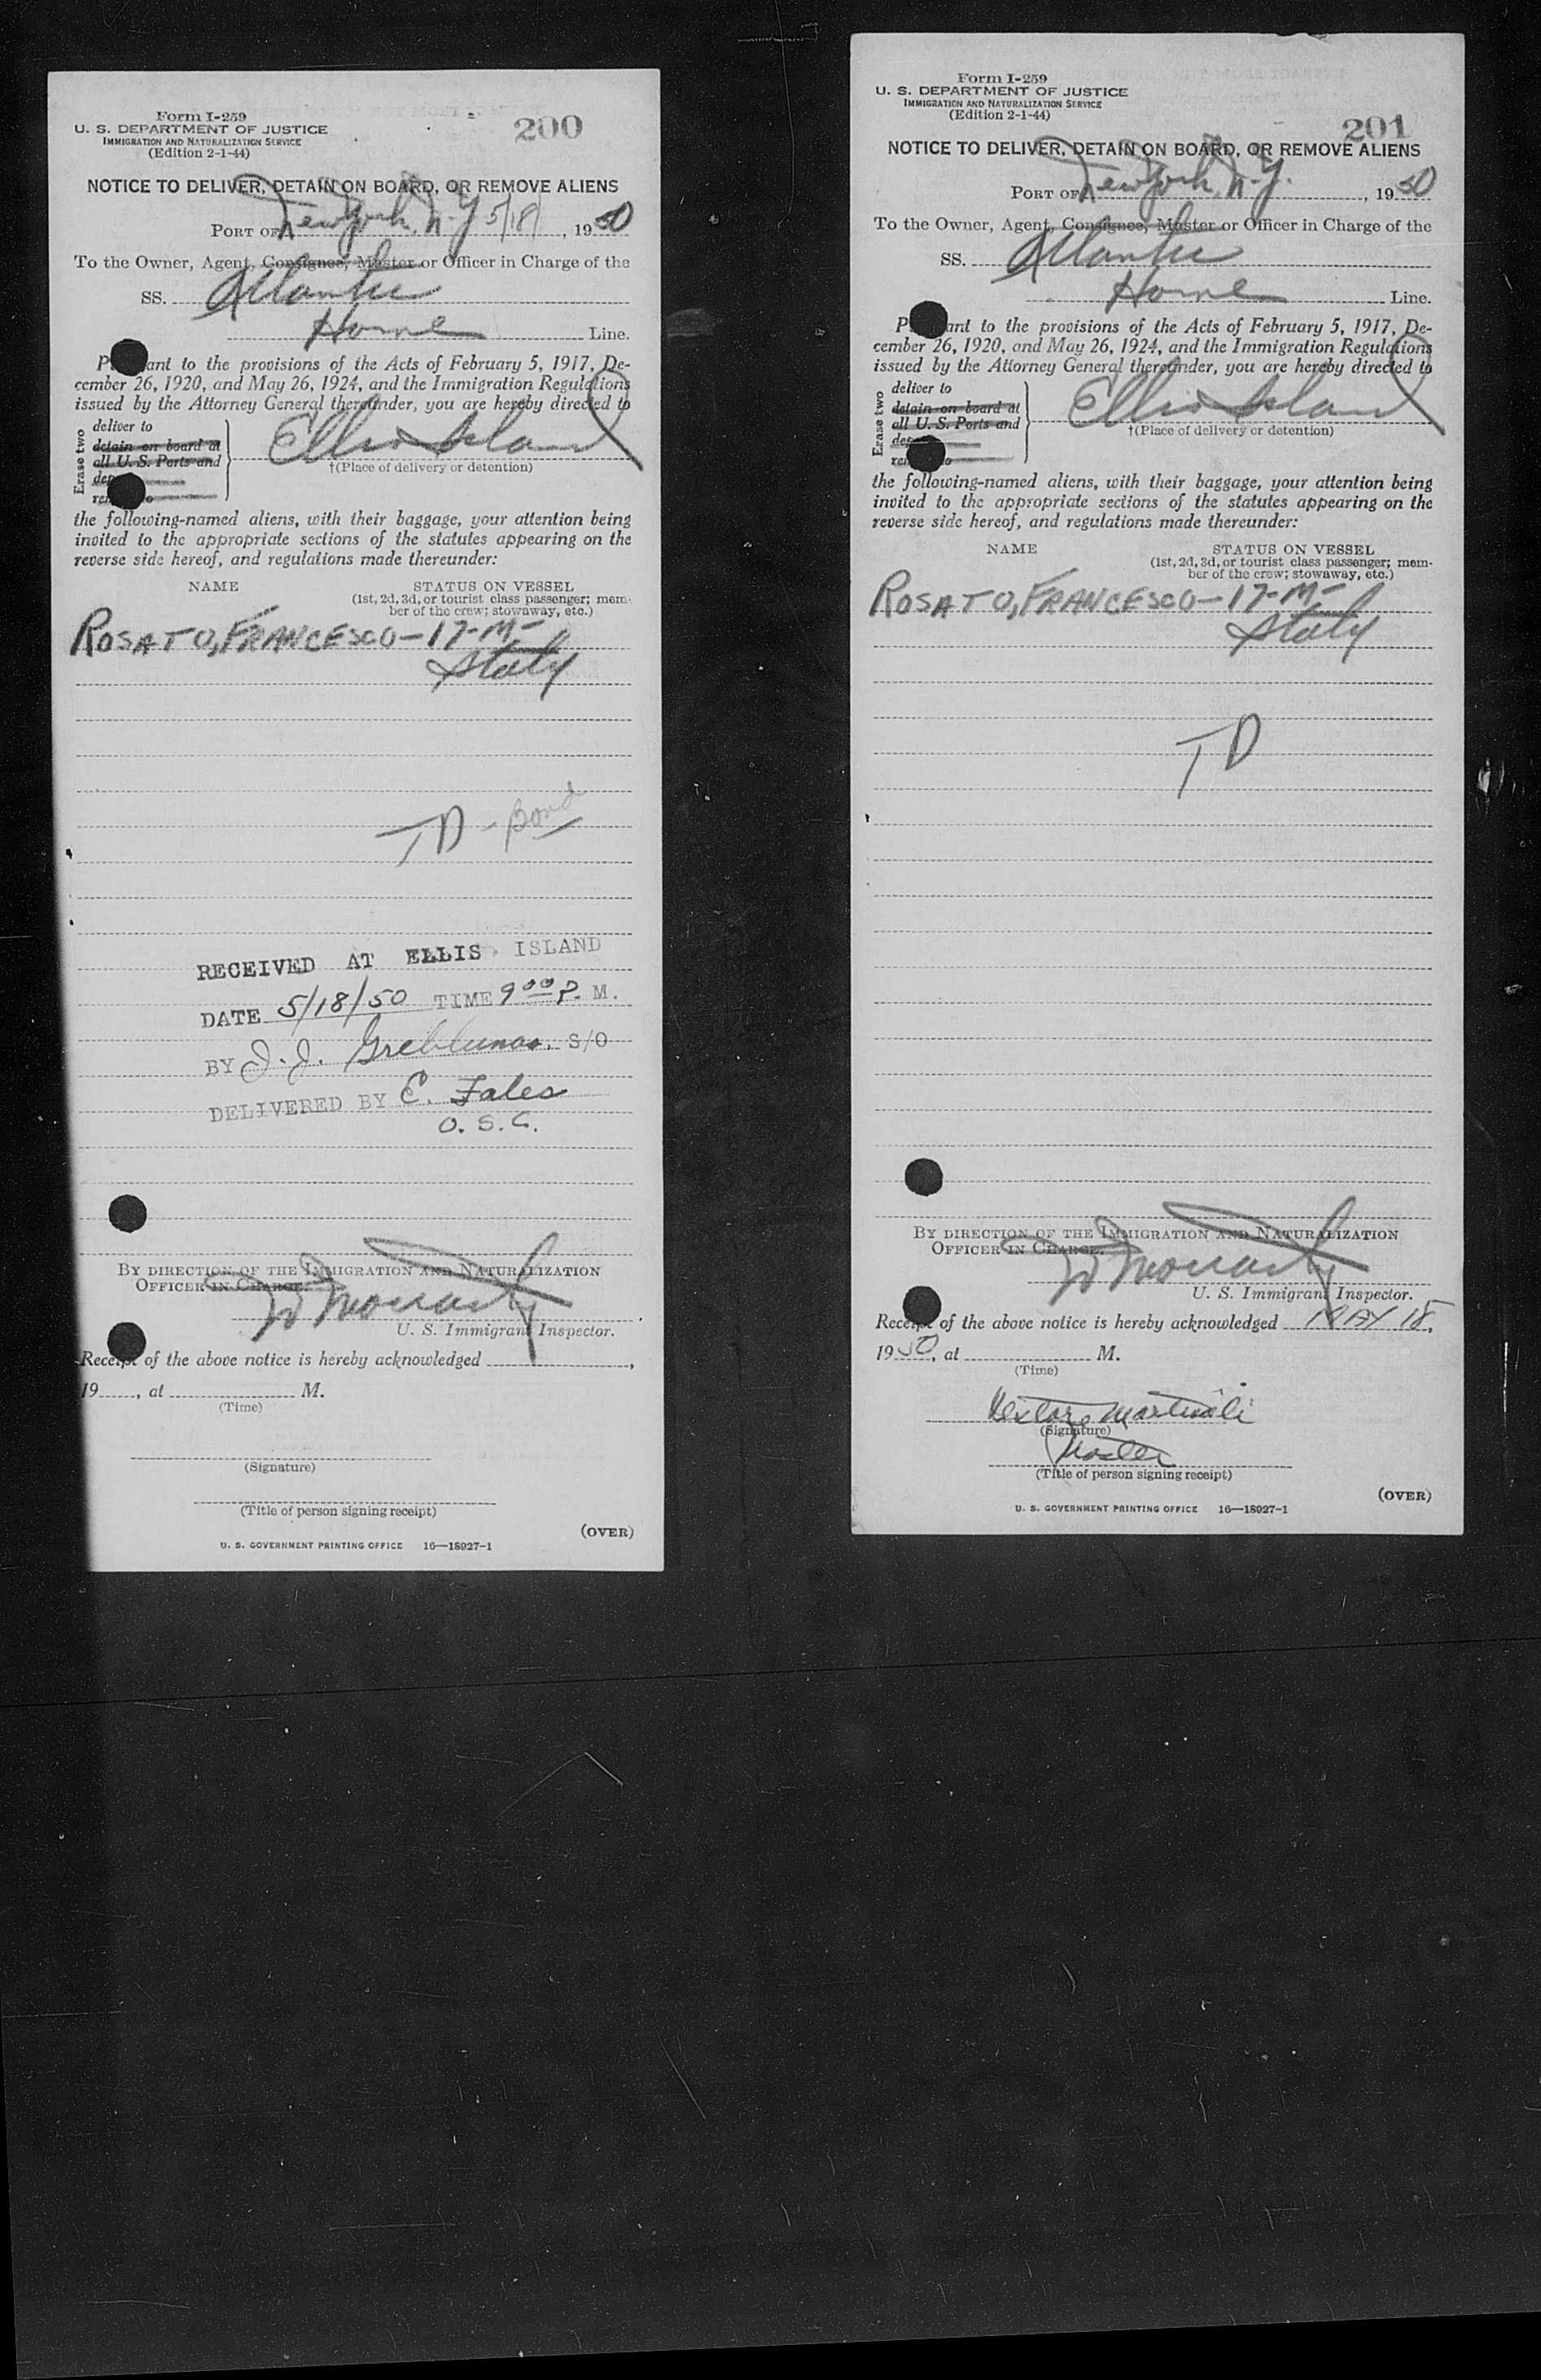 Form I-259
U. S. DEPARTMENT OF JUSTICE
IMMIGRATION AND NATURALIZATION SERVICE
(Edition 2-1-44)
200
NOTICE TO DELIVER, DETAIN ON BOARD, OR REMOVE ALIENS
PORT OF New York, N.Y. 5/18/, 1950
To the Owner, Agent, Consignee, Master or Officer in Charge of the
SS. Atlantic
Home Line.
P ant to the provisions of the Acts of February 5, 1917, De-
cember 26, 1920, and May 26, 1924, and the Immigration Regulations
issued by the Attorney General thereunder, you are hereby directed to
Erase two
deliver to
detain on board at
all U. S. Ports and
Ellis Island
†(Place of delivery or detention)
the following-named aliens, with their baggage, your attention being
invited to the appropriate sections of the statutes appearing on the
reverse side hereof, and regulations made thereunder:
NAME STATUS ON VESSEL
(1st, 2d, 3d, or tourist class passenger; mem-
ber of the crew; stowaway, etc.)
ROSATO, FRANCESCO - 17-M-
Italy
TD - Bond
RECEIVED AT ELLIS ISLAND
DATE 5/18/50 TIME 9 00 P. M.
BY J. J. S/O
DELIVERED BY E. Fales
O. S. C.
BY DIRECTION OF THE IMMIGRATION AND NATURALIZATION
OFFICER IN CHARGE.
U. S. Immigrant Inspector.
Receipt of the above notice is hereby acknowledged ,
19 , at M.
(Time)
(Signature)
(Title of person signing receipt)
(OVER)
U. S. GOVERNMENT PRINTING OFFICE 16—18927-1
Form I-259
U. S. DEPARTMENT OF JUSTICE
IMMIGRATION AND NATURALIZATION SERVICE
(Edition 2-1-44)
201
NOTICE TO DELIVER, DETAIN ON BOARD, OR REMOVE ALIENS
PORT OF New York, N.Y. , 1950
To the Owner, Agent, Consignee, Master or Officer in Charge of the
SS. Atlantic
Home Line.
P ant to the provisions of the Acts of February 5, 1917, De-
cember 26, 1920, and May 26, 1924, and the Immigration Regulations
issued by the Attorney General thereunder, you are hereby directed to
Erase two
deliver to
detain on board at
all U. S. Ports and
Ellis Island
†(Place of delivery or detention)
the following-named aliens, with their baggage, your attention being
invited to the appropriate sections of the statutes appearing on the
reverse side hereof, and regulations made thereunder:
NAME STATUS ON VESSEL
(1st, 2d, 3d, or tourist class passenger; mem-
ber of the crew; stowaway, etc.)
ROSATO, FRANCESCO - 17-M-
Italy
TD
BY DIRECTION OF THE IMMIGRATION AND NATURALIZATION
OFFICER IN CHARGE.
U. S. Immigrant Inspector.
Receipt of the above notice is hereby acknowledged MAY 18,
1950, at M.
(Time)
(Signature)
Master
(Title of person signing receipt)
(OVER)
U. S. GOVERNMENT PRINTING OFFICE 16—18927-1